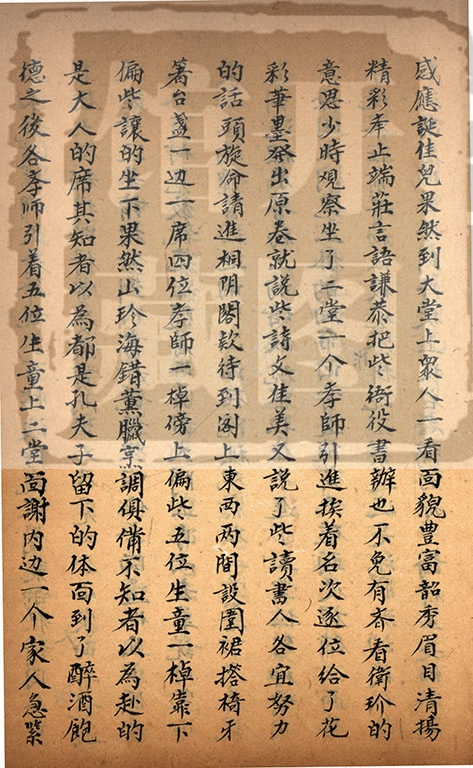 感應誕佳兒果然到大堂上衆人一看面貌豊富韶秀眉目清揚
精彩牵止端莊言語謙恭把些衙役書辦也不免有斉看衛玠的
意思少時观察坐了二堂命一个孝師引進挨着名次逐位给了花
彩筆墨發出原卷就説些詩文佳美又説了些讀書人各宜努力
的話頭旋命請進桐阴閣款待到阁上東西两間設圍裙搭椅牙
箸台盞一边一席四位孝師一棹傍上偏些五位生童一棹靠下
偏些讓的坐下果然山珍海錯薰臘烹調俱備不知者以為赴的
是大人的席其知者以為都是孔夫子留下的体面到了醉酒飽
德之後各孝师引着五位生童上二堂面謝内边一个家人急紧